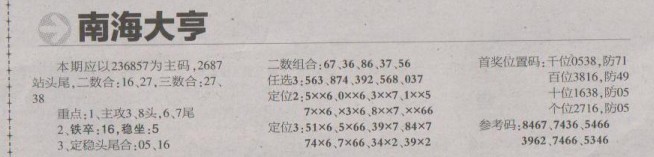 南海大亨
本期应以236857为主码,2687
站头尾,二数合:16、27,三数合:27、
38
重点:1、主攻3、8头,6、7尾
2、铁卒:16,稳坐:5
3、定稳头尾合:05、16
二数组合:67、36、86、37、56
任选3:563、874、392、568、037
定位2:5××6、0××6、3××7、1××5
7××6、×3×6、8××7、××66
定位3:51×6、5×66、39×7、84×7
74×6、7×66、34×2、39×2
首奖位置码:千位0538,防71
百位3816,防49
十位1638,防05
个位2716,防05
参考码:8467、7436、5466
3962、7466、5346